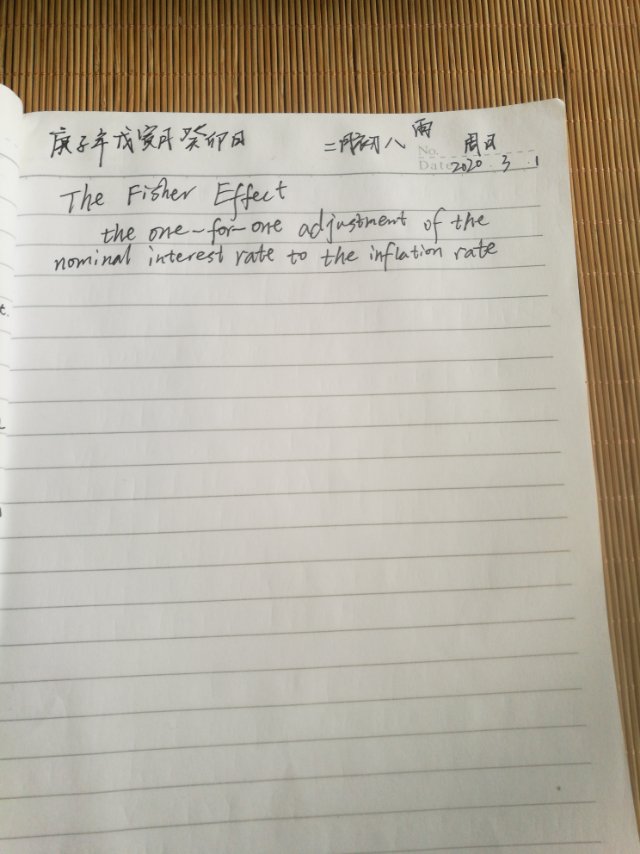 庚子年戊寅月癸卯日 二月初八 雨 周日
No.
Date 2020 . 3 . 1
The Fisher Effect
the one-for-one adjustment of the
nominal interest rate to the inflation rate
t.